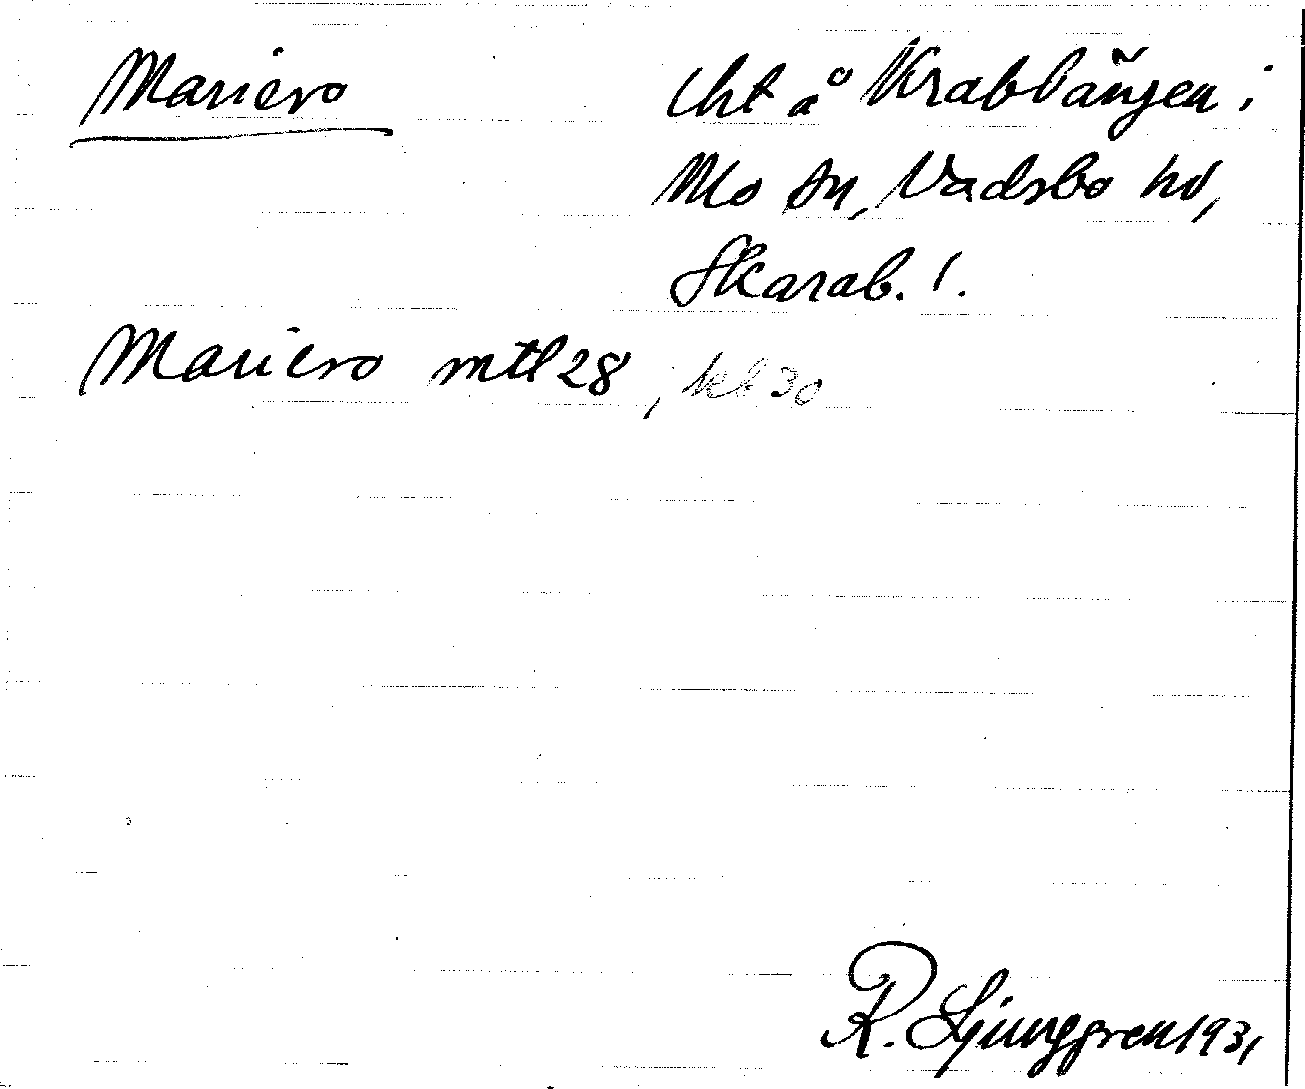 Mariero
lht å Krabbängen i
Mo sn, Vadsbo hd,
Skarab. l.
Mariero mtl 28, kb 30
R. Ljunggren 1931